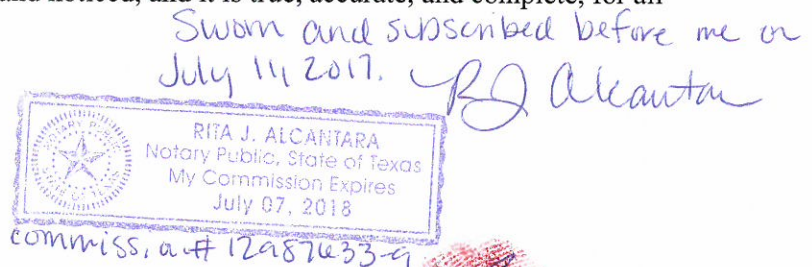 and noticed, and it is true, accurate, and complete, for all
Sworn and subscribed before me on
July 11, 2017. RJ Alcantara
RITA J. ALCANTARA
Notary Public, State of Texas
My Commission Expires
July 07, 2018
NOTARY PUBLIC
STATE OF TEXAS
commission # 12987633-9